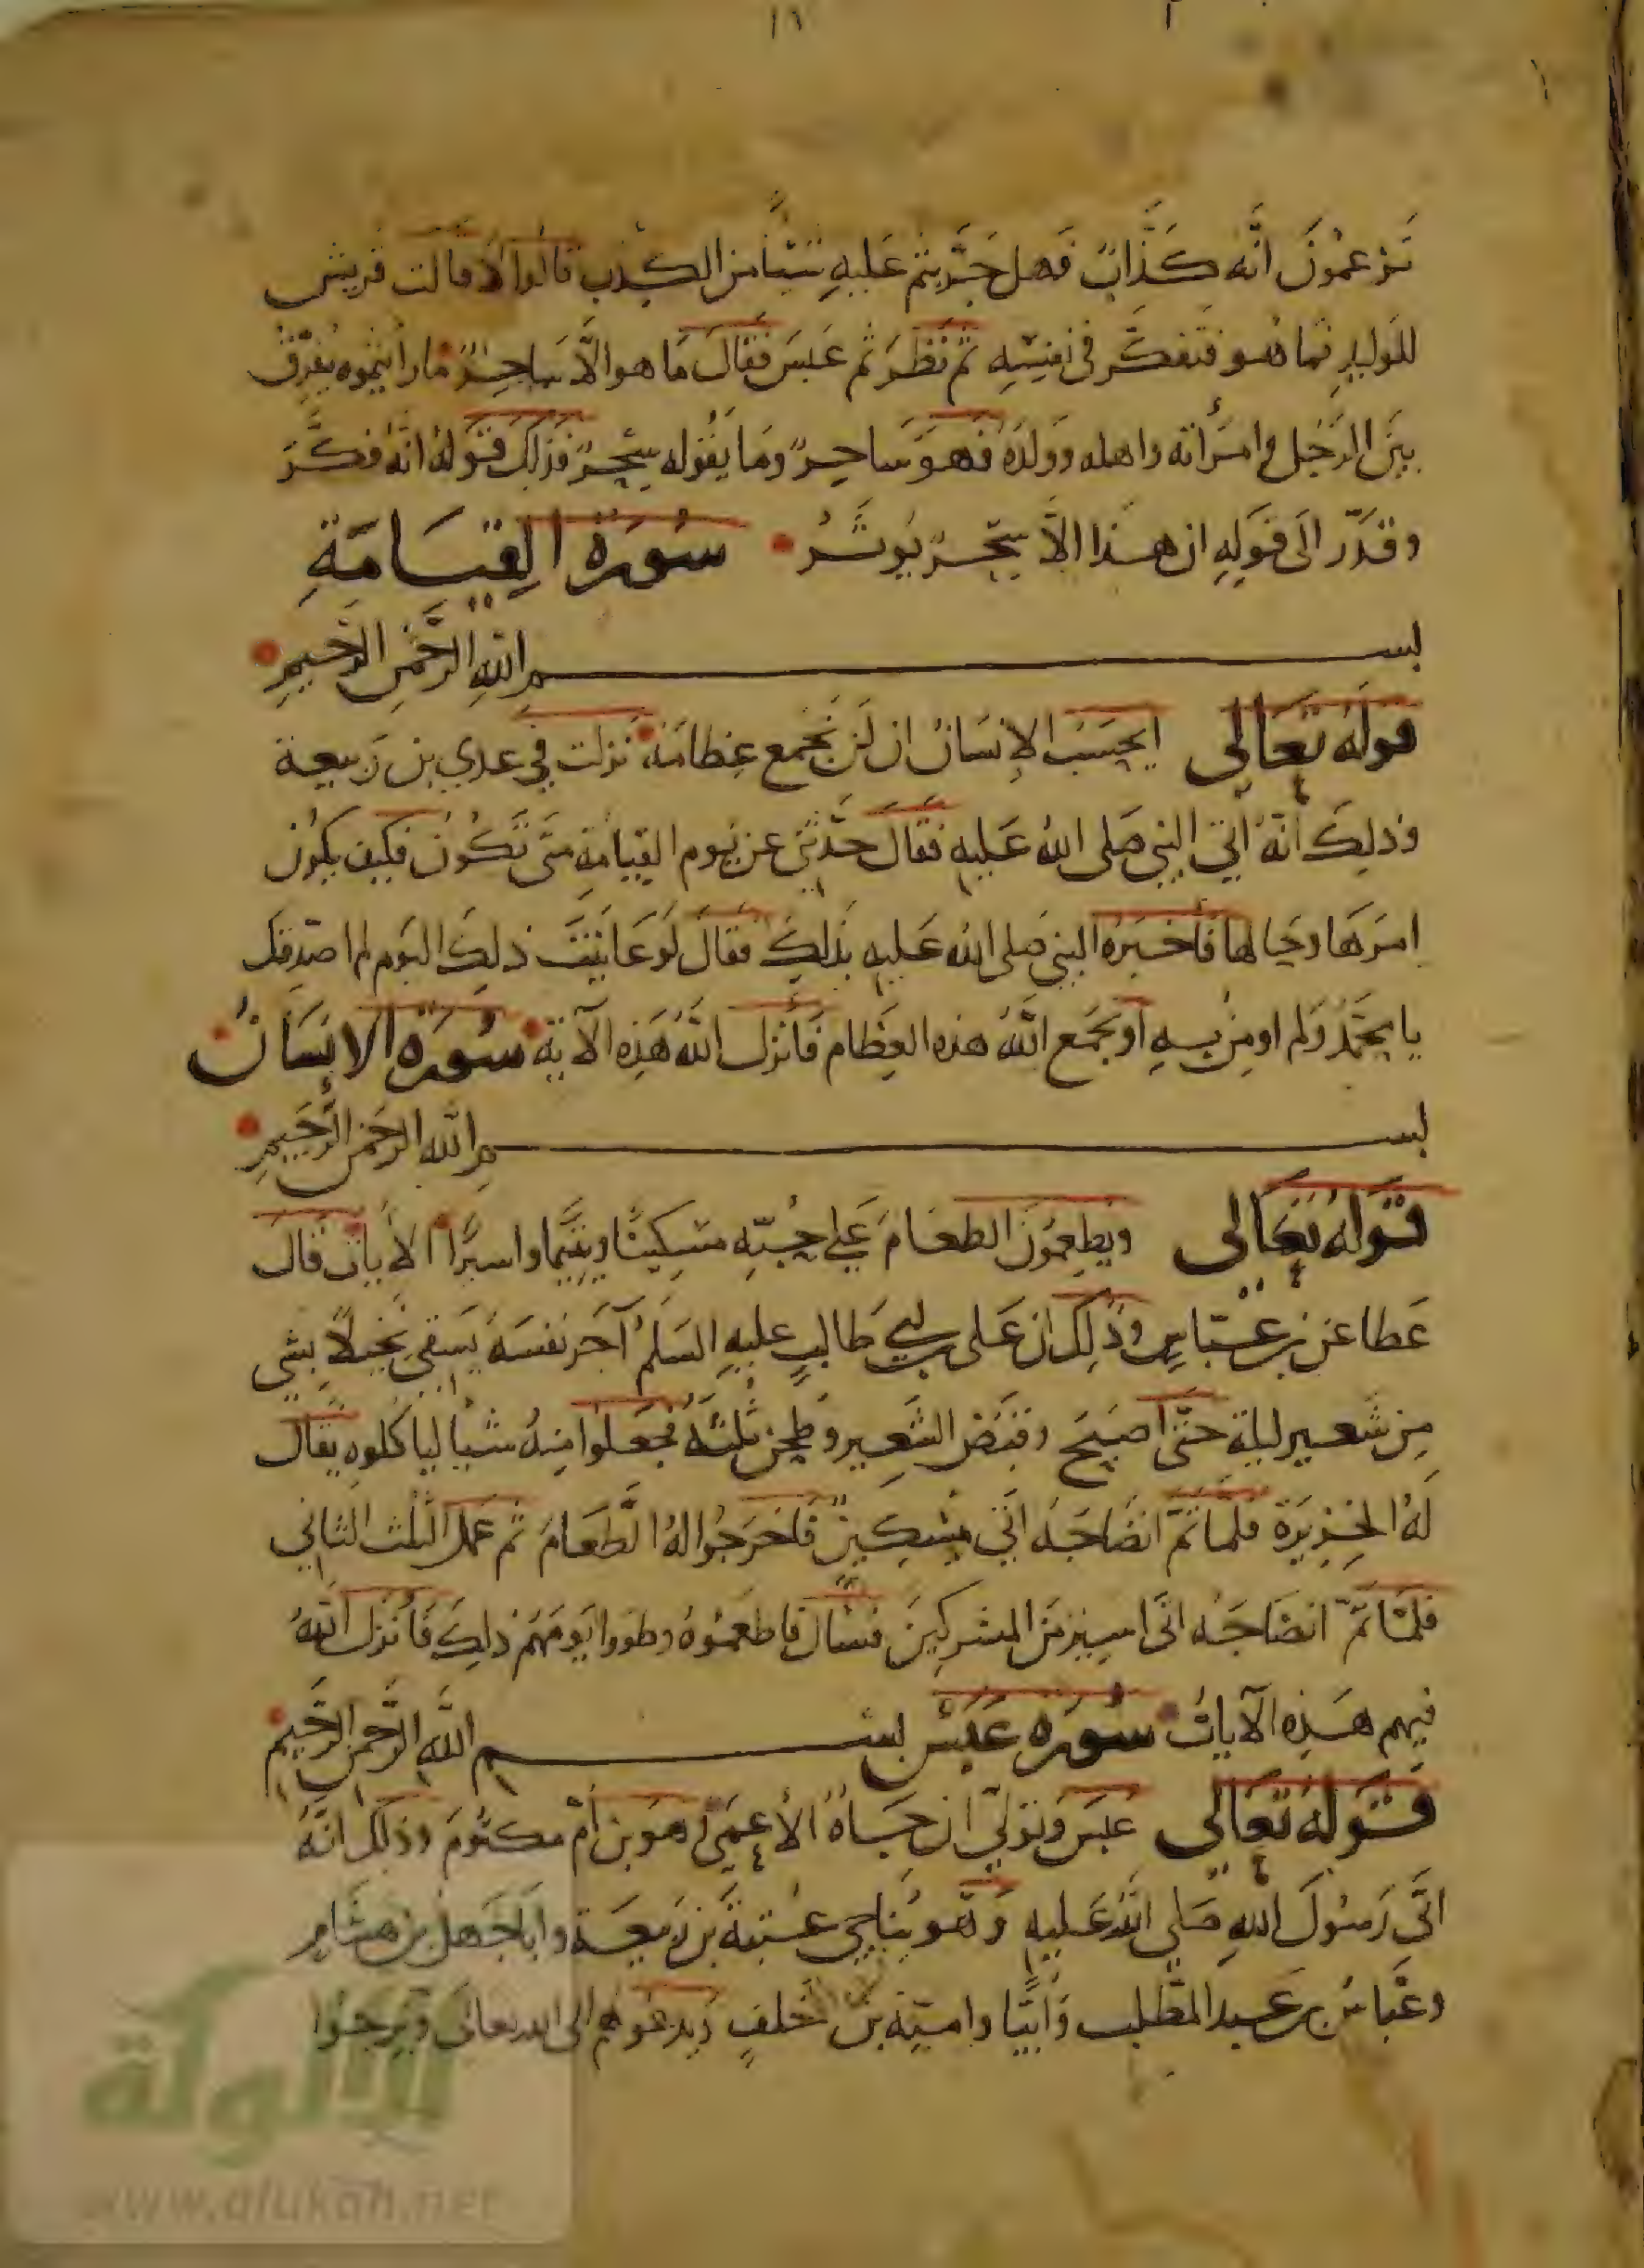 تَزعمُونَ انّه كَذّابٌ فَهل جَرَّبتم عَليهِ شيئًا من الكذِب قالوا لا قالت قُريش
للوَليدِ فما هُو فتفكّر في نفسِه ثم نَظَر ثم عَبسَ فقالَ مَا هو الاّ سَاحِرٌ مَا رأيتموه يفرّق
بينَ الرّجل وامرَأته واهله ووَلدِه فهوَ ساحِرٌ ومَا يقُوله سِحرٌ فذلك قَوله انّه فكّرَ
وقدّر الى قَولِهِ ان هذا الاّ سحرٌ يُوثَرُ سُورَة القِيَامَةِ
بسم اللهِ الرَّحمنِ الرَّحيمِ
قولهُ تَعَالى ايحسَبُ الإنسَانُ ان لَن نَجمع عِظامَهُ نزلت في عدي بن رَبيعة
وَذلِكَ أنّهُ أتى النبي صَلى اللهُ عَليهِ فقالَ حَدّثني عن يَوم القِيامَةِ متَى تكُونُ فكيف يكُون
امرَهَا وحَالها فأخبرَهُ النبي صلى الله عَليهِ بذلكَ فقالَ لَو عَايَنتُ ذلِكَ اليَوم لم اصَدّقك
يا محَمّدُ وَلم اومِن بِهِ أو يجمَع اللهُ هذه العِظَام فأنزل اللهُ هَذِهِ الآية سُورَة الانسَانُ
بسم الله الرحمَن الرَّحيمِ
قَوَلهُ تَعَالى ويُطعِمُونَ الطعَامَ عَلى حُبّهِ مِسكِينًا ويَتيمًا واسيرًا الأيات قالَ
عَطا عَن بن عبّاسٍ وذلِك ان عَلى بن ابي طَالبٍ عليهِ السَلمُ آجَر نفسَهُ يَسقى نخيلاً بشي
مِن شَعيرٍ ليلة حتّى اصبَحَ وقبَضَ الشَعِير وطحن ثلثهُ فجعَلوا مِنهُ شيأ لياكلوهِ يقال
لَهُ الخزِيرَة فلمّا تمّ انضَاجَهُ اتَى مِسكِينٌ فأخرجُوا لهُ الطّعَامَ ثم عَمل الثلث الثاني
فلمّا تمّ انضَاجَهُ اتَى اسِير مِنَ المشركِينَ فسأل فاطعَمُوهُ وطووا يَومَهُم ذلِكَ فأنزل اللهُ
فيهم هَذِهِ الآيات سُورَة عَبَسَ بسم اللهِ الرَّحمنِ الرَّحِيم
قَولهُ تَعَالى عَبَسَ وتَوَلّى ان جَاهُ الأعمَى وَهوَ بن أمّ مكتُومَ وذلِكَ انّهُ
اتَى رَسُولَ اللهِ صَلي اللهُ عَليهِ وَهُو يُناجي عتبةَ بن رَبيعَة وابا جَهل بن هشام
وعَبّاسُ بن عَبد المطَّلب وَأبيّا واميّة بن خلفٍ وَيدعُوهم الى الله تعالَى ويَرجُوا
الألوكة
www.alukah.net